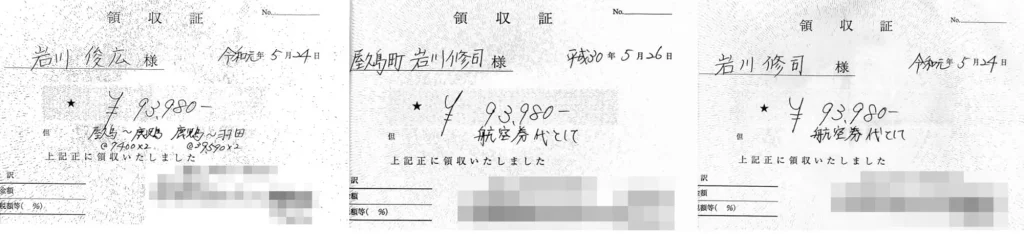 領収証
No.
岩川 俊広 様
令和元年5月24日
★ ¥93,980−
但 屋久島〜鹿児島 鹿児島〜羽田
@7400×2 @39590×2
上記正に領収いたしました
訳
金額
税額等( %)
領収証
No.
屋久島町 岩川修司 様
平成30年5月26日
★ ¥93,980−
但 航空券代として
上記正に領収いたしました
訳
金額
税額等( %)
領収証
No.
岩川 修司 様
令和元年5月24日
★ ¥93,980−
但 航空券代として
上記正に領収いたしました
訳
金額
税額等( %)